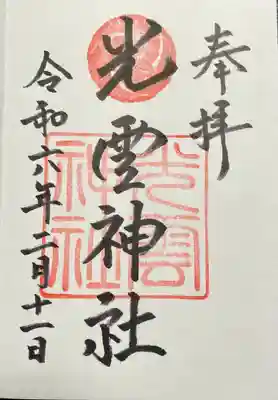 奉拝
光雲神社
令和六年二月十一日
光雲
神社